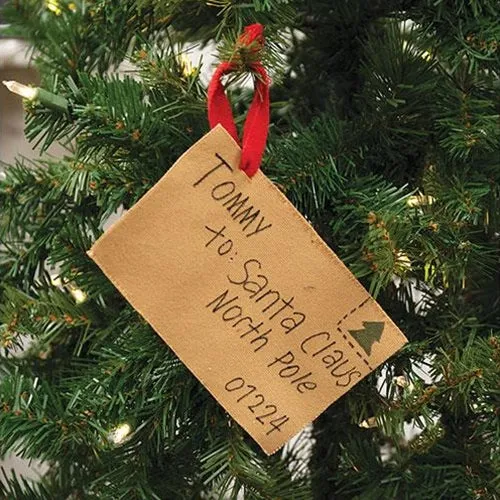 TOMMY
to: Santa Claus
North Pole
01224